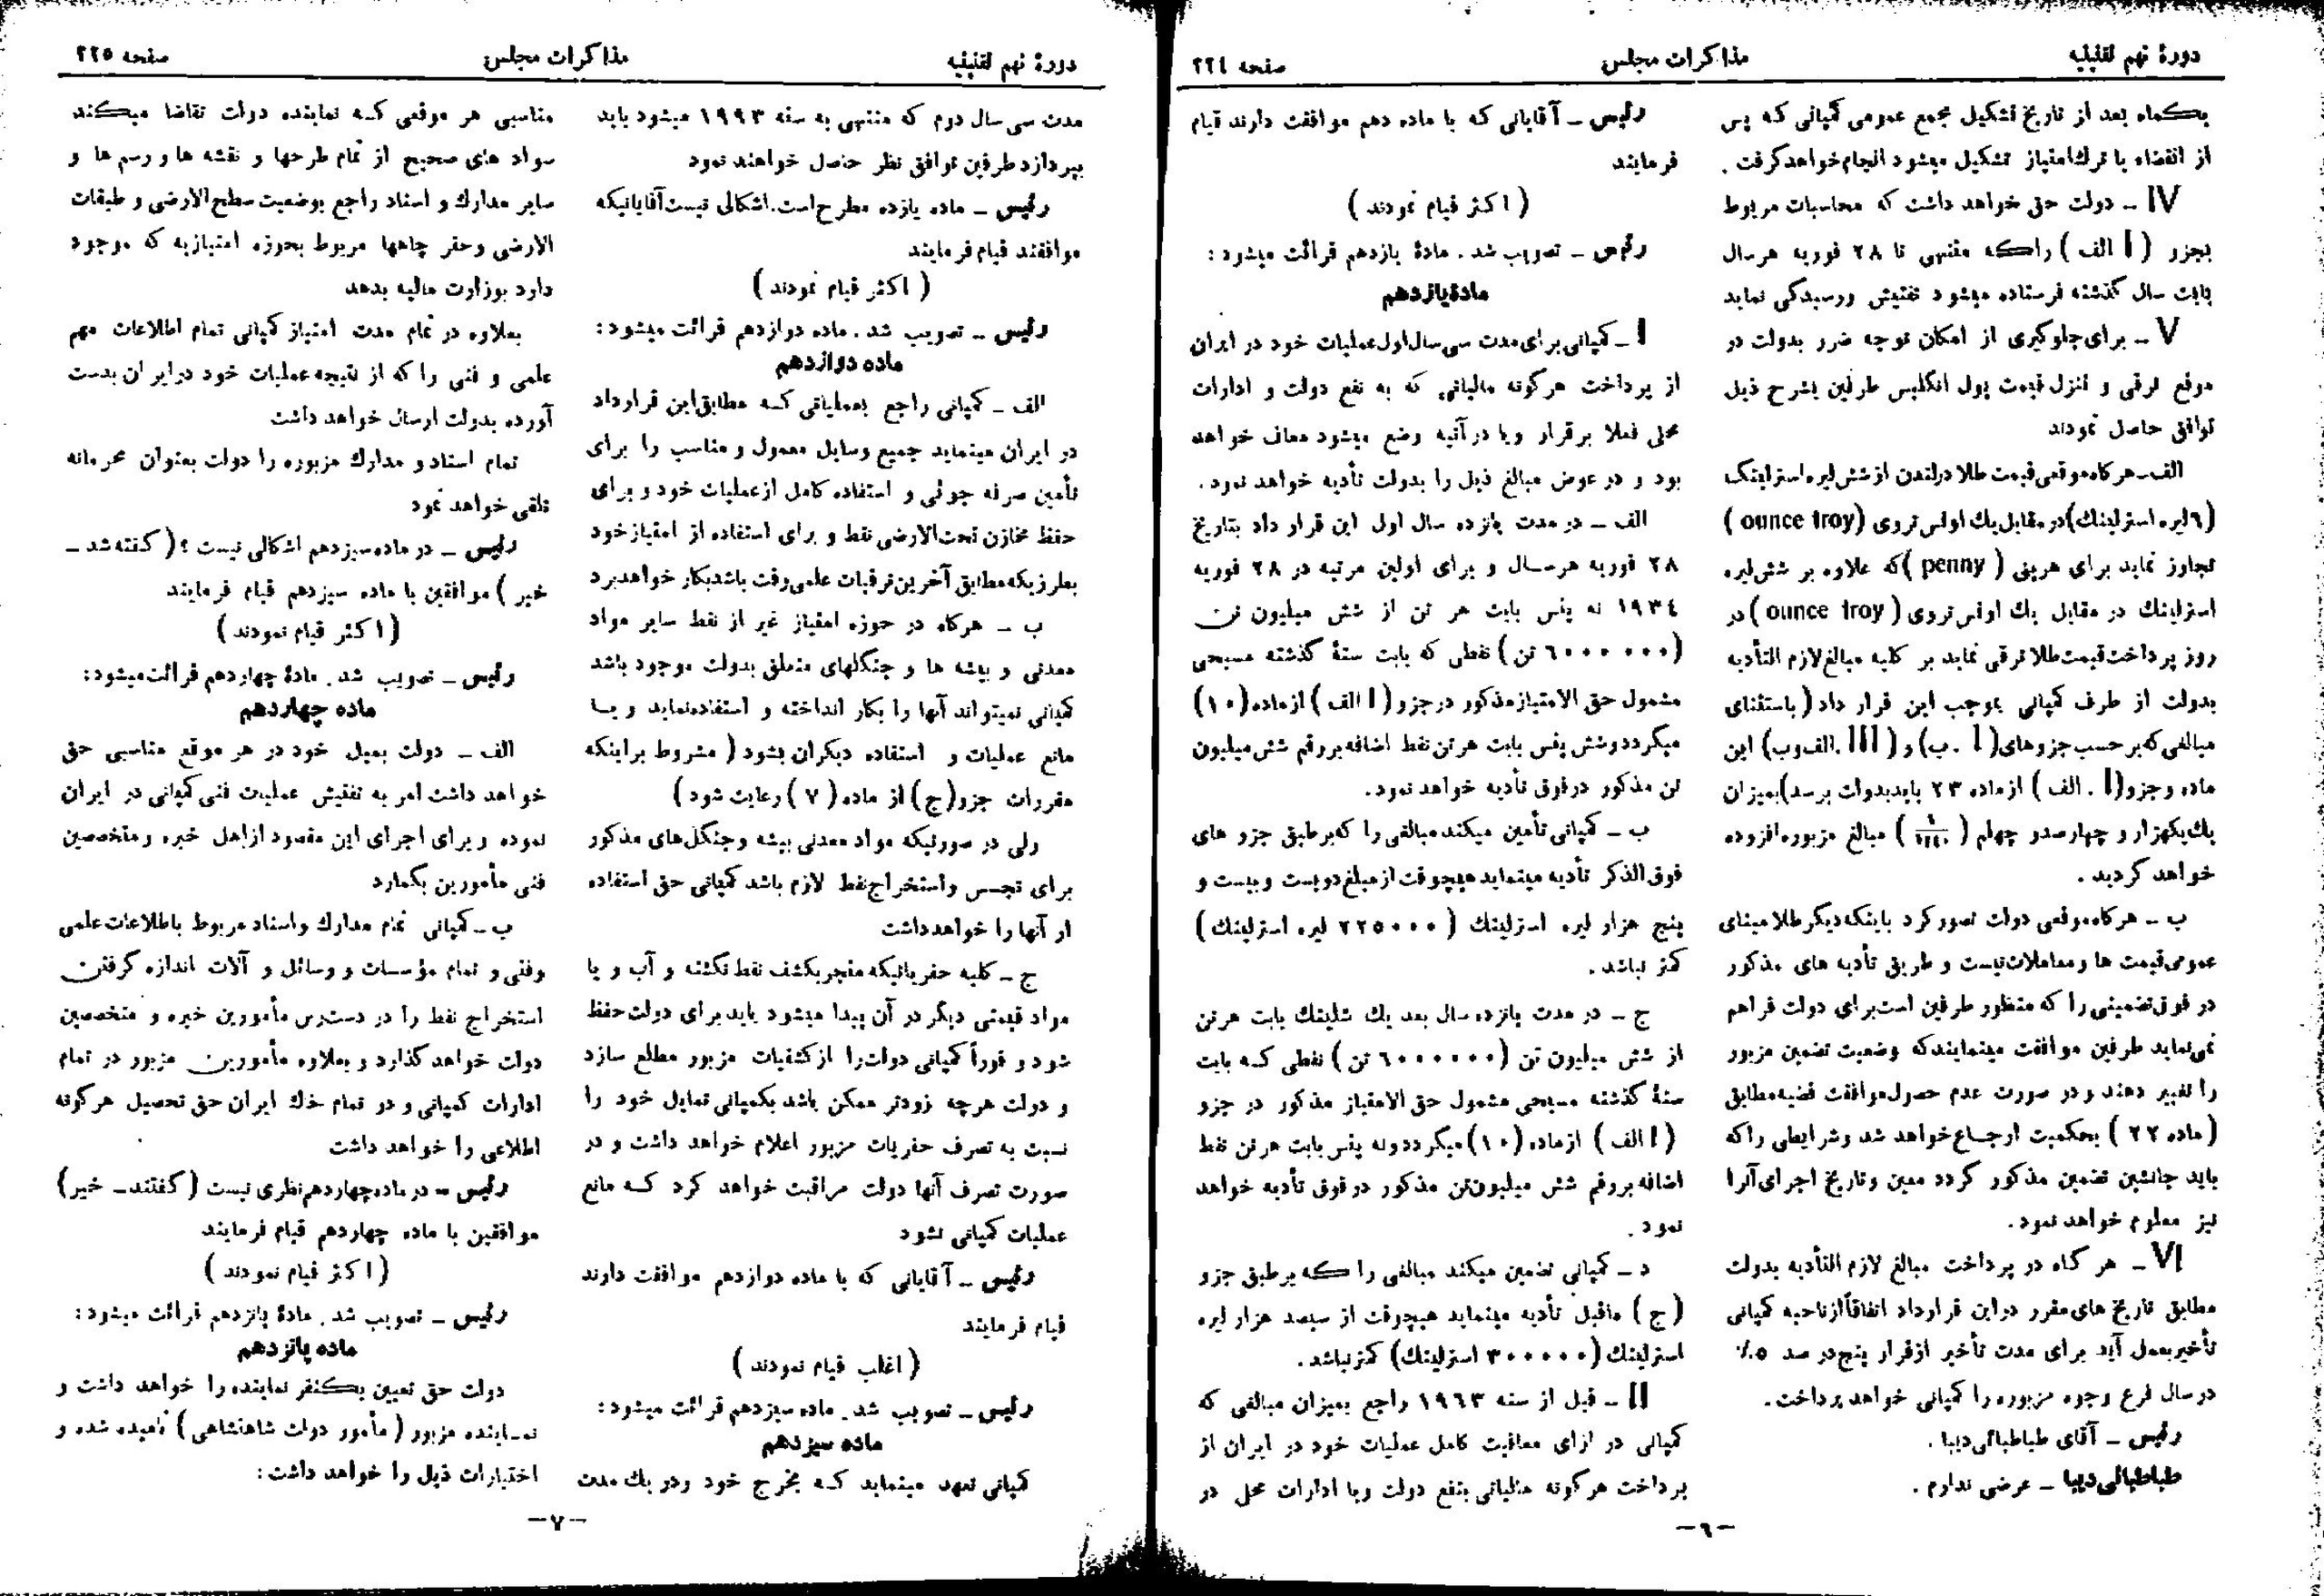 دورهٔ نهم تقنینیه
مذاکرات مجلس
صفحه ۲۲٤
یکماه بعد از تاریخ تشکیل مجمع عمومی کمپانی که پس
از انقضاء یا ترك امتیاز تشکیل میشود انجام خواهد گرفت .
IV ـ دولت حق خواهد داشت که محاسبات مربوط
بجزو ( I الف ) را که منتهی تا ۲۸ فوریه هر سال
بابت سال گذشته فرستاده میشود تفتیش و رسیدگی نماید
V ـ برای جلوگیری از امکان توجه ضرر بدولت در
موقع ترقی و تنزل قیمت پول انگلیس طرفین بشرح ذیل
توافق حاصل نمودند
الف ـ هرگاه موقعی قیمت طلا در لندن از شش لیره استرلینگ
(٦ لیره استرلینك) در مقابل یك اونس تروی (ounce troy )
تجاوز نماید برای هر پنی ( penny ) که علاوه بر شش لیره
استرلینك در مقابل یك اونس تروی ( ounce troy ) در
روز پرداخت قیمت طلا ترقی نماید بر کلیه مبالغ لازم التأدیه
بدولت از طرف کمپانی بموجب این قرار داد ( باستثنای
مبالغی که بر حسب جزوهای ( I . ب) و ( III .الف و ب) این
ماده و جزو (I . الف ) از ماده ۲۳ باید بدولت برسد) بمیزان
یك یکهزار و چهارصد و چهلم ( ۱/۱٤٤۰ ) مبالغ مزبوره افزوده
خواهد گردید .
ب ـ هرگاه موقعی دولت تصور کرد باینکه دیگر طلا مبنای
عمومی قیمت ها و معاملات نیست و طریق تأدیه های مذکور
در فوق تضمینی را که منظور طرفین است برای دولت فراهم
نمی نماید طرفین موافقت مینمایند که وضعیت تضمین مزبور
را تغییر دهند و در صورت عدم حصول موافقت قضیه مطابق
(ماده ۲۲ ) بحکمیت ارجاع خواهد شد و شرایطی را که
باید جانشین تضمین مذکور گردد معین و تاریخ اجرای آنرا
نیز معلوم خواهد نمود.
VI ـ هر گاه در پرداخت مبالغ لازم التأدیه بدولت
مطابق تاریخ های مقرر در این قرارداد اتفاقاً از ناحیه کمپانی
تأخیر بعمل آید برای مدت تأخیر از قرار پنج در صد ۵٪
در سال فرع وجوه مزبوره را کمپانی خواهد پرداخت.
رئیس ـ آقای طباطبائی دیبا .
طباطبائی دیبا ـ عرضی ندارم .
رئیس ـ آقایانی که با ماده دهم موافقت دارند قیام
فرمایند
( اکثر قیام نمودند )
رئیس ـ تصویب شد . مادهٔ یازدهم قرائت میشود :
مادهٔ یازدهم
I ـ کمپانی برای مدت سی سال اول عملیات خود در ایران
از پرداخت هرگونه مالیاتی که به نفع دولت و ادارات
محلی فعلا برقرار و یا در آتیه وضع میشود معاف خواهد
بود و در عوض مبالغ ذیل را بدولت تأدیه خواهد نمود .
الف ـ در مدت پانزده سال اول این قرار داد بتاریخ
۲۸ فوریه هر سال و برای اولین مرتبه در ۲۸ فوریه
۱۹۳٤ نه پنس بابت هر تن از شش میلیون تن
(٦۰۰۰۰۰۰ تن ) نفطی که بابت سنهٔ گذشته مسیحی
مشمول حق الامتیاز مذکور در جزو ( I الف ) از ماده (۱۰)
میگردد و شش پنس بابت هر تن نفط اضافه بر رقم شش میلیون
تن مذکور در فوق تأدیه خواهد نمود.
ب ـ کمپانی تأمین میکند مبالغی را که بر طبق جزو های
فوق الذکر تأدیه مینماید هیچوقت از مبلغ دویست و بیست و
پنج هزار لیره استرلینك ( ۲۲٥۰۰۰ لیره استرلینك )
کمتر نباشد .
ج ـ در مدت پانزده سال بعد یك شلینك بابت هر تن
از شش میلیون تن (٦۰۰۰۰۰۰ تن ) نفطی که بابت
سنهٔ گذشته مسیحی مشمول حق الامتیاز مذکور در جزو
( I الف ) از ماده (۱۰) میگردد و نه پنس بابت هر تن نفط
اضافه بر رقم شش میلیون تن مذکور در فوق تأدیه خواهد
نمود .
د ـ کمپانی تضمین میکند مبالغی را که بر طبق جزو
( ج ) ماقبل تأدیه مینماید هیچوقت از سیصد هزار لیره
استرلینك (۳۰۰۰۰۰ استرلینك) کمتر نباشد.
II ـ قبل از سنه ۱۹٦۳ راجع بمیزان مبالغی که
کمپانی در ازای معافیت کامل عملیات خود در ایران از
پرداخت هر گونه مالیاتی بنفع دولت و یا ادارات محل در
ـ ٦ ـ
دورهٔ نهم تقنینیه
مذاکرات مجلس
صفحه ۲۲٥
مدت سی سال دوم که منتهی به سنه ۱۹۹۳ میشود باید
بپردازد طرفین توافق نظر حاصل خواهند نمود
رئیس ـ ماده یازده مطرح است. اشکالی نیست آقایانیکه
موافقند قیام فرمایند
( اکثر قیام نمودند )
رئیس ـ تصویب شد . ماده دوازدهم قرائت میشود :
ماده دوازدهم
الف ـ کمپانی راجع بعملیاتی که مطابق این قرارداد
در ایران مینماید جمیع وسایل معمول و مناسب را برای
تأمین صرفه جوئی و استفاده کامل از عملیات خود و برای
حفظ مخازن تحت الارضی نفط و برای استفاده از امتیاز خود
بطرزیکه مطابق آخرین ترقیات علمی وقت باشد بکار خواهد برد
ب ـ هرگاه در حوزه امتیاز غیر از نفط سایر مواد
معدنی و بیشه ها و جنگلهای متعلق بدولت موجود باشد
کمپانی نمیتواند آنها را بکار انداخته و استفاده نماید و یا
مانع عملیات و استفاده دیگران بشود ( مشروط براینکه
مقررات جزو (ج) از ماده ( ۷ ) رعایت شود )
ولی در صورتیکه مواد معدنی بیشه و جنگل های مذکور
برای تجسس و استخراج نفط لازم باشد کمپانی حق استفاده
از آنها را خواهد داشت
ج ـ کلیه حفریاتیکه منجر بکشف نفط نگشته و آب و یا
مواد قیمتی دیگر در آن پیدا میشود باید برای دولت حفظ
شود و فوراً کمپانی دولت را از کشفیات مزبور مطلع سازد
و دولت هرچه زودتر ممکن باشد بکمپانی تمایل خود را
نسبت به تصرف حفریات مزبور اعلام خواهد داشت و در
صورت تصرف آنها دولت مراقبت خواهد کرد که مانع
عملیات کمپانی نشود
رئیس ـ آقایانی که با ماده دوازدهم موافقت دارند
قیام فرمایند
( اغلب قیام نمودند )
رئیس ـ تصویب شد. ماده سیزدهم قرائت میشود :
ماده سیزدهم
کمپانی تعهد مینماید که بخرج خود و در یك مدت
مناسبی هر موقعی که نماینده دولت تقاضا میکند
سواد های صحیح از تمام طرحها و نقشه ها و رسم ها و
سایر مدارك و اسناد راجع بوضعیت سطح الارضی و طبقات
الارضی و حفر چاهها مربوط بحوزه امتیازیه که موجود
دارد بوزارت مالیه بدهد
بعلاوه در تمام مدت امتیاز کمپانی تمام اطلاعات مهم
علمی و فنی را که از نتیجه عملیات خود در ایران بدست
آورده بدولت ارسال خواهد داشت
تمام اسناد و مدارك مزبوره را دولت بعنوان محرمانه
تلقی خواهد نمود
رئیس ـ در ماده سیزدهم اشکالی نیست ؟ ( گفته شد ـ
خیر ) موافقین با ماده سیزدهم قیام فرمایند
( اکثر قیام نمودند )
رئیس ـ تصویب شد. مادهٔ چهاردهم قرائت میشود :
ماده چهاردهم
الف ـ دولت بمیل خود در هر موقع مناسبی حق
خواهد داشت امر به تفتیش عملیات فنی کمپانی در ایران
نموده و برای اجرای این مقصود از اهل خبره و متخصصین
فنی مأمورین بگمارد
ب ـ کمپانی تمام مدارك و اسناد مربوط باطلاعات علمی
و فنی و تمام مؤسسات و وسائل و آلات اندازه گرفتن
استخراج نفط را در دسترس مأمورین خبره و متخصصین
دولت خواهد گذارد و بعلاوه مأمورین مزبور در تمام
ادارات کمپانی و در تمام خاك ایران حق تحصیل هرگونه
اطلاعی را خواهد داشت
رئیس ـ در ماده چهاردهم نظری نیست ( گفتند ـ خیر )
موافقین با ماده چهاردهم قیام فرمایند
( اکثر قیام نمودند )
رئیس ـ تصویب شد . مادهٔ پانزدهم قرائت میشود :
ماده پانزدهم
دولت حق تعیین یکنفر نماینده را خواهد داشت و
نماینده مزبور ( مأمور دولت شاهنشاهی ) نامیده شده و
اختیارات ذیل را خواهد داشت :
ـ ۷ ـ